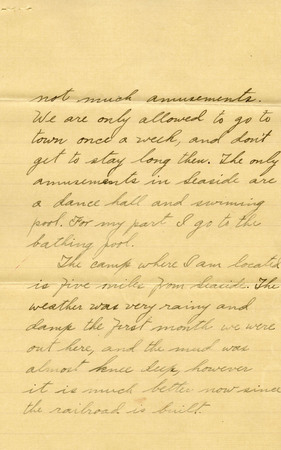 not much amusements.
We are only allowed to go to
town once a week, and don't
get to stay long then. The only
amusements in Seaside are
a dance hall and swimming
pool. For my part I go to the
bathing pool.
The camp where I am located
is five miles from Seaside. The
weather was very rainy and
damp the first month we were
out here, and the mud was
almost knee deep, however
it is much better now since
the railroad is built.